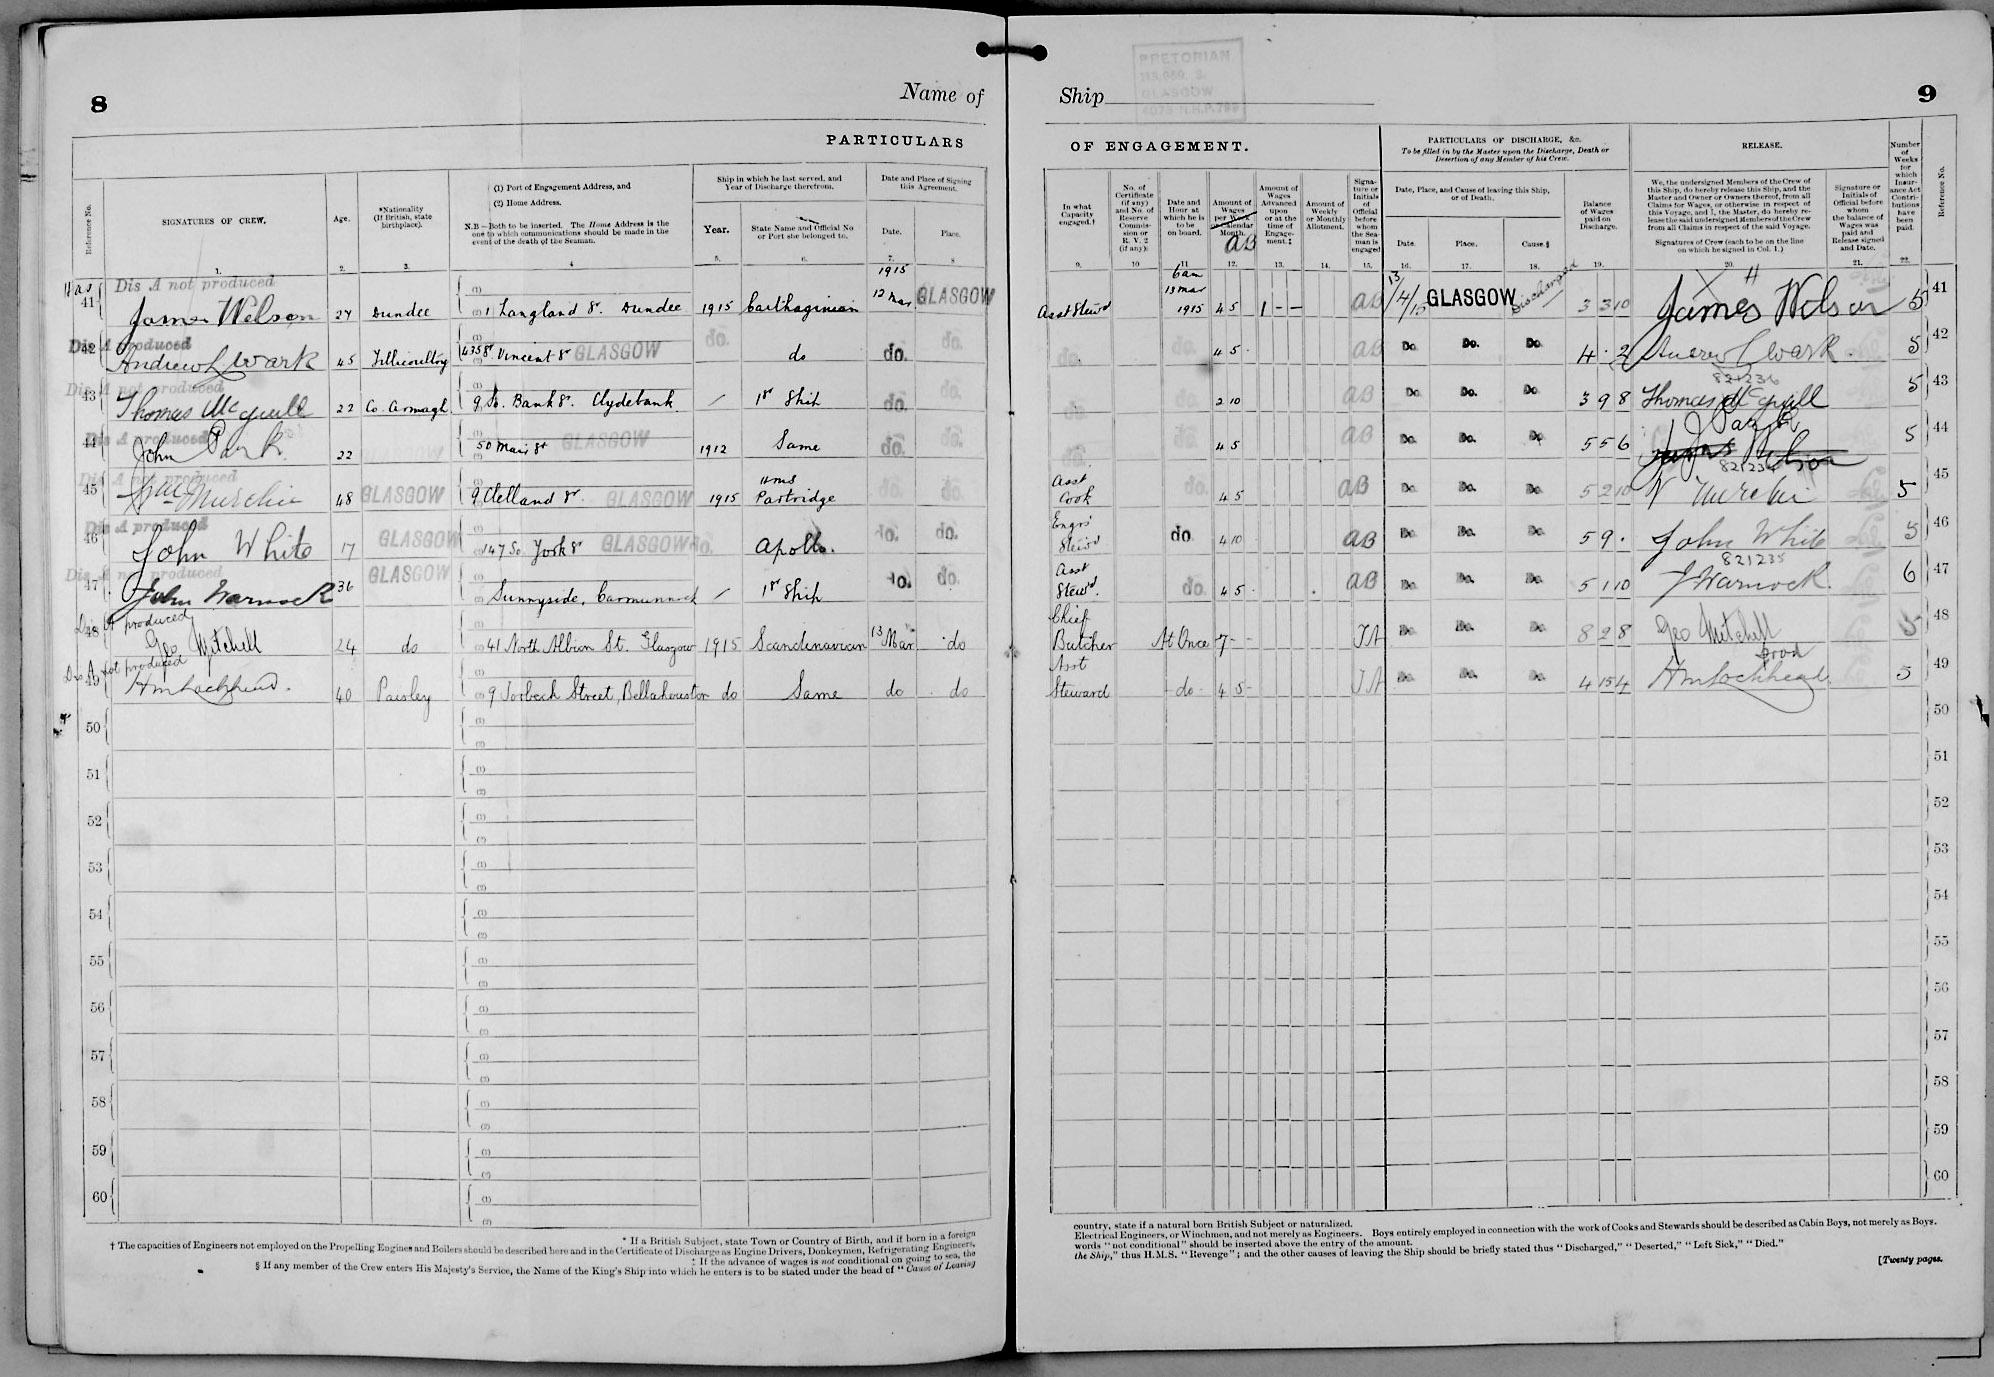 8
Name of
PARTICULARS
Reference No.
SIGNATURES OF CREW.
Age.
*Nationality
(If British, state
birthplace).
(1) Port of Engagement Address, and
(2) Home Address.
N.B—Both to be inserted. The Home Address is the
one to which communications should be made in the
event of the death of the Seaman.
Ship in which he last served, and
Year of Discharge therefrom.
Year.
State Name and Official No
or Port she belonged to.
Date and Place of Signing
this Agreement.
Date.
Place.
1.
2.
3.
4
5.
6.
7.
8
Dis A not produced
1915
41 James Wilson 27 Dundee 1 Langland St. Dundee 1915 Carthaginian 12 Mar GLASGOW
Dis A produced
42 Andrew Wark 45 Tillicoultry 435 St Vincent St GLASGOW do. do do.
Dis A not produced
43 Thomas McGuill 22 Co. Armagh 9 Bank St. Clydebank / 1st Ship do. do.
Dis A produced
44 John Park 22 50 Main St GLASGOW 1912 Same do. do.
Dis A not produced
45 Murchie 48 GLASGOW 9 Clelland St. GLASGOW 1915 HMS Partridge do. do.
Dis A produced
46 John White 17 GLASGOW 147 So. York St GLASGOW do. Apollo. do. do.
Dis A not produced
47 John Warnock 36 GLASGOW Sunnyside, Carmunnock / 1st Ship do. do.
Dis A produced
48 Geo Mitchell 24 do 41 North Albion St. Glasgow 1915 Scandinavian 13 Mar do
Dis A not produced
49 Lochhead. 40 Paisley 9 Torbeck Street, Bellahouston do Same do do
50
51
52
53
54
55
56
57
58
59
60
* If a British Subject, state Town or Country of Birth, and if born in a foreign
† The capacities of Engineers not employed on the Propelling Engines and Boilers should be described here and in the Certificate of Discharge as Engine Drivers, Donkeymen, Refrigerating Engineers,
‡ If the advance of wages is not conditional on going to sea, the
§ If any member of the Crew enters His Majesty's Service, the Name of the King's Ship into which he enters is to be stated under the head of "Cause of Leaving
PRETORIAN
GLASGOW
Ship
9
OF ENGAGEMENT.
PARTICULARS OF DISCHARGE, &c.
To be filled in by the Master upon the Discharge, Death or
Desertion of any Member of his Crew.
RELEASE.
Number
of
Weeks
for
which
Insur-
ance Act
Contri-
butions
have
been
paid.
Reference No.
In what
Capacity
engaged.†
No. of
Certificate
(if any)
and No. of
Reserve
Commis-
sion or
R. V. 2
(if any).
Date and
Hour at
which he is
to be
on board.
Amount of
Wages
per Week
Calendar
Month.
AB
Amount of
Wages
Advanced
upon
or at the
time of
Engage-
ment.‡
Amount of
Weekly
or Monthly
Allotment.
Signa-
ture or
Initials
of
Official
before
whom
the Sea-
man is
engaged
Date, Place, and Cause of leaving this Ship,
or of Death.
Date.
Place.
Cause.§
Balance
of Wages
paid on
Discharge.
We, the undersigned Members of the Crew of
this Ship, do hereby release this Ship, and the
Master and Owner or Owners thereof, from all
Claims for Wages, or otherwise in respect of
this Voyage, and I, the Master, do hereby re-
lease the said undersigned Members of the Crew
from all Claims in respect of the said Voyage.
Signatures of Crew (each to be on the line
on which he signed in Col. 1.)
Signature or
Initials of
Official before
whom
the balance of
Wages was
paid and
Release signed
and Date.
9.
10
11
12.
13.
14.
15.
16.
17.
18.
19.
20.
21.
22.
6am
13 Mar
Asst Stewd 1915 4 5 1 – – AB 13/4/15 GLASGOW Discharged 3 3 10 James Wilson 5 41
do. 4 5 AB Do. Do. Do. 4 . 2 Andrew Wark. 5 42
821236
do. 2 10 AB Do. Do. Do. 3 9 8 Thomas McGuill 5 43
do. 4 5 AB Do. Do. Do. 5 5 6 J Park 5 44
821234
Asst Cook 4 5 AB Do. Do. Do. 5 2 10 Murchie 5 45
Engrs' Stewd do. 4 10 AB Do. Do. Do. 5 9 . John White 5 46
821235
Asst Stewd. do. 4 5 AB Do. Do. Do. 5 1 10 J Warnock. 6 47
Chief Butcher At Once 7 – – JA Do. Do. Do. 8 2 8 Geo Mitchell 5 48
Asst Steward do 4 5 – JA Do. Do. Do. 4 15 4 Lochhead 5 49
50
51
52
53
54
55
56
57
58
59
60
country, state if a natural born British Subject or naturalized.
Electrical Engineers, or Winchmen, and not merely as Engineers. Boys entirely employed in connection with the work of Cooks and Stewards should be described as Cabin Boys, not merely as Boys.
words "not conditional" should be inserted above the entry of the amount.
the Ship," thus H.M.S. "Revenge"; and the other causes of leaving the Ship should be briefly stated thus "Discharged," "Deserted," "Left Sick," "Died."
[Twenty pages.